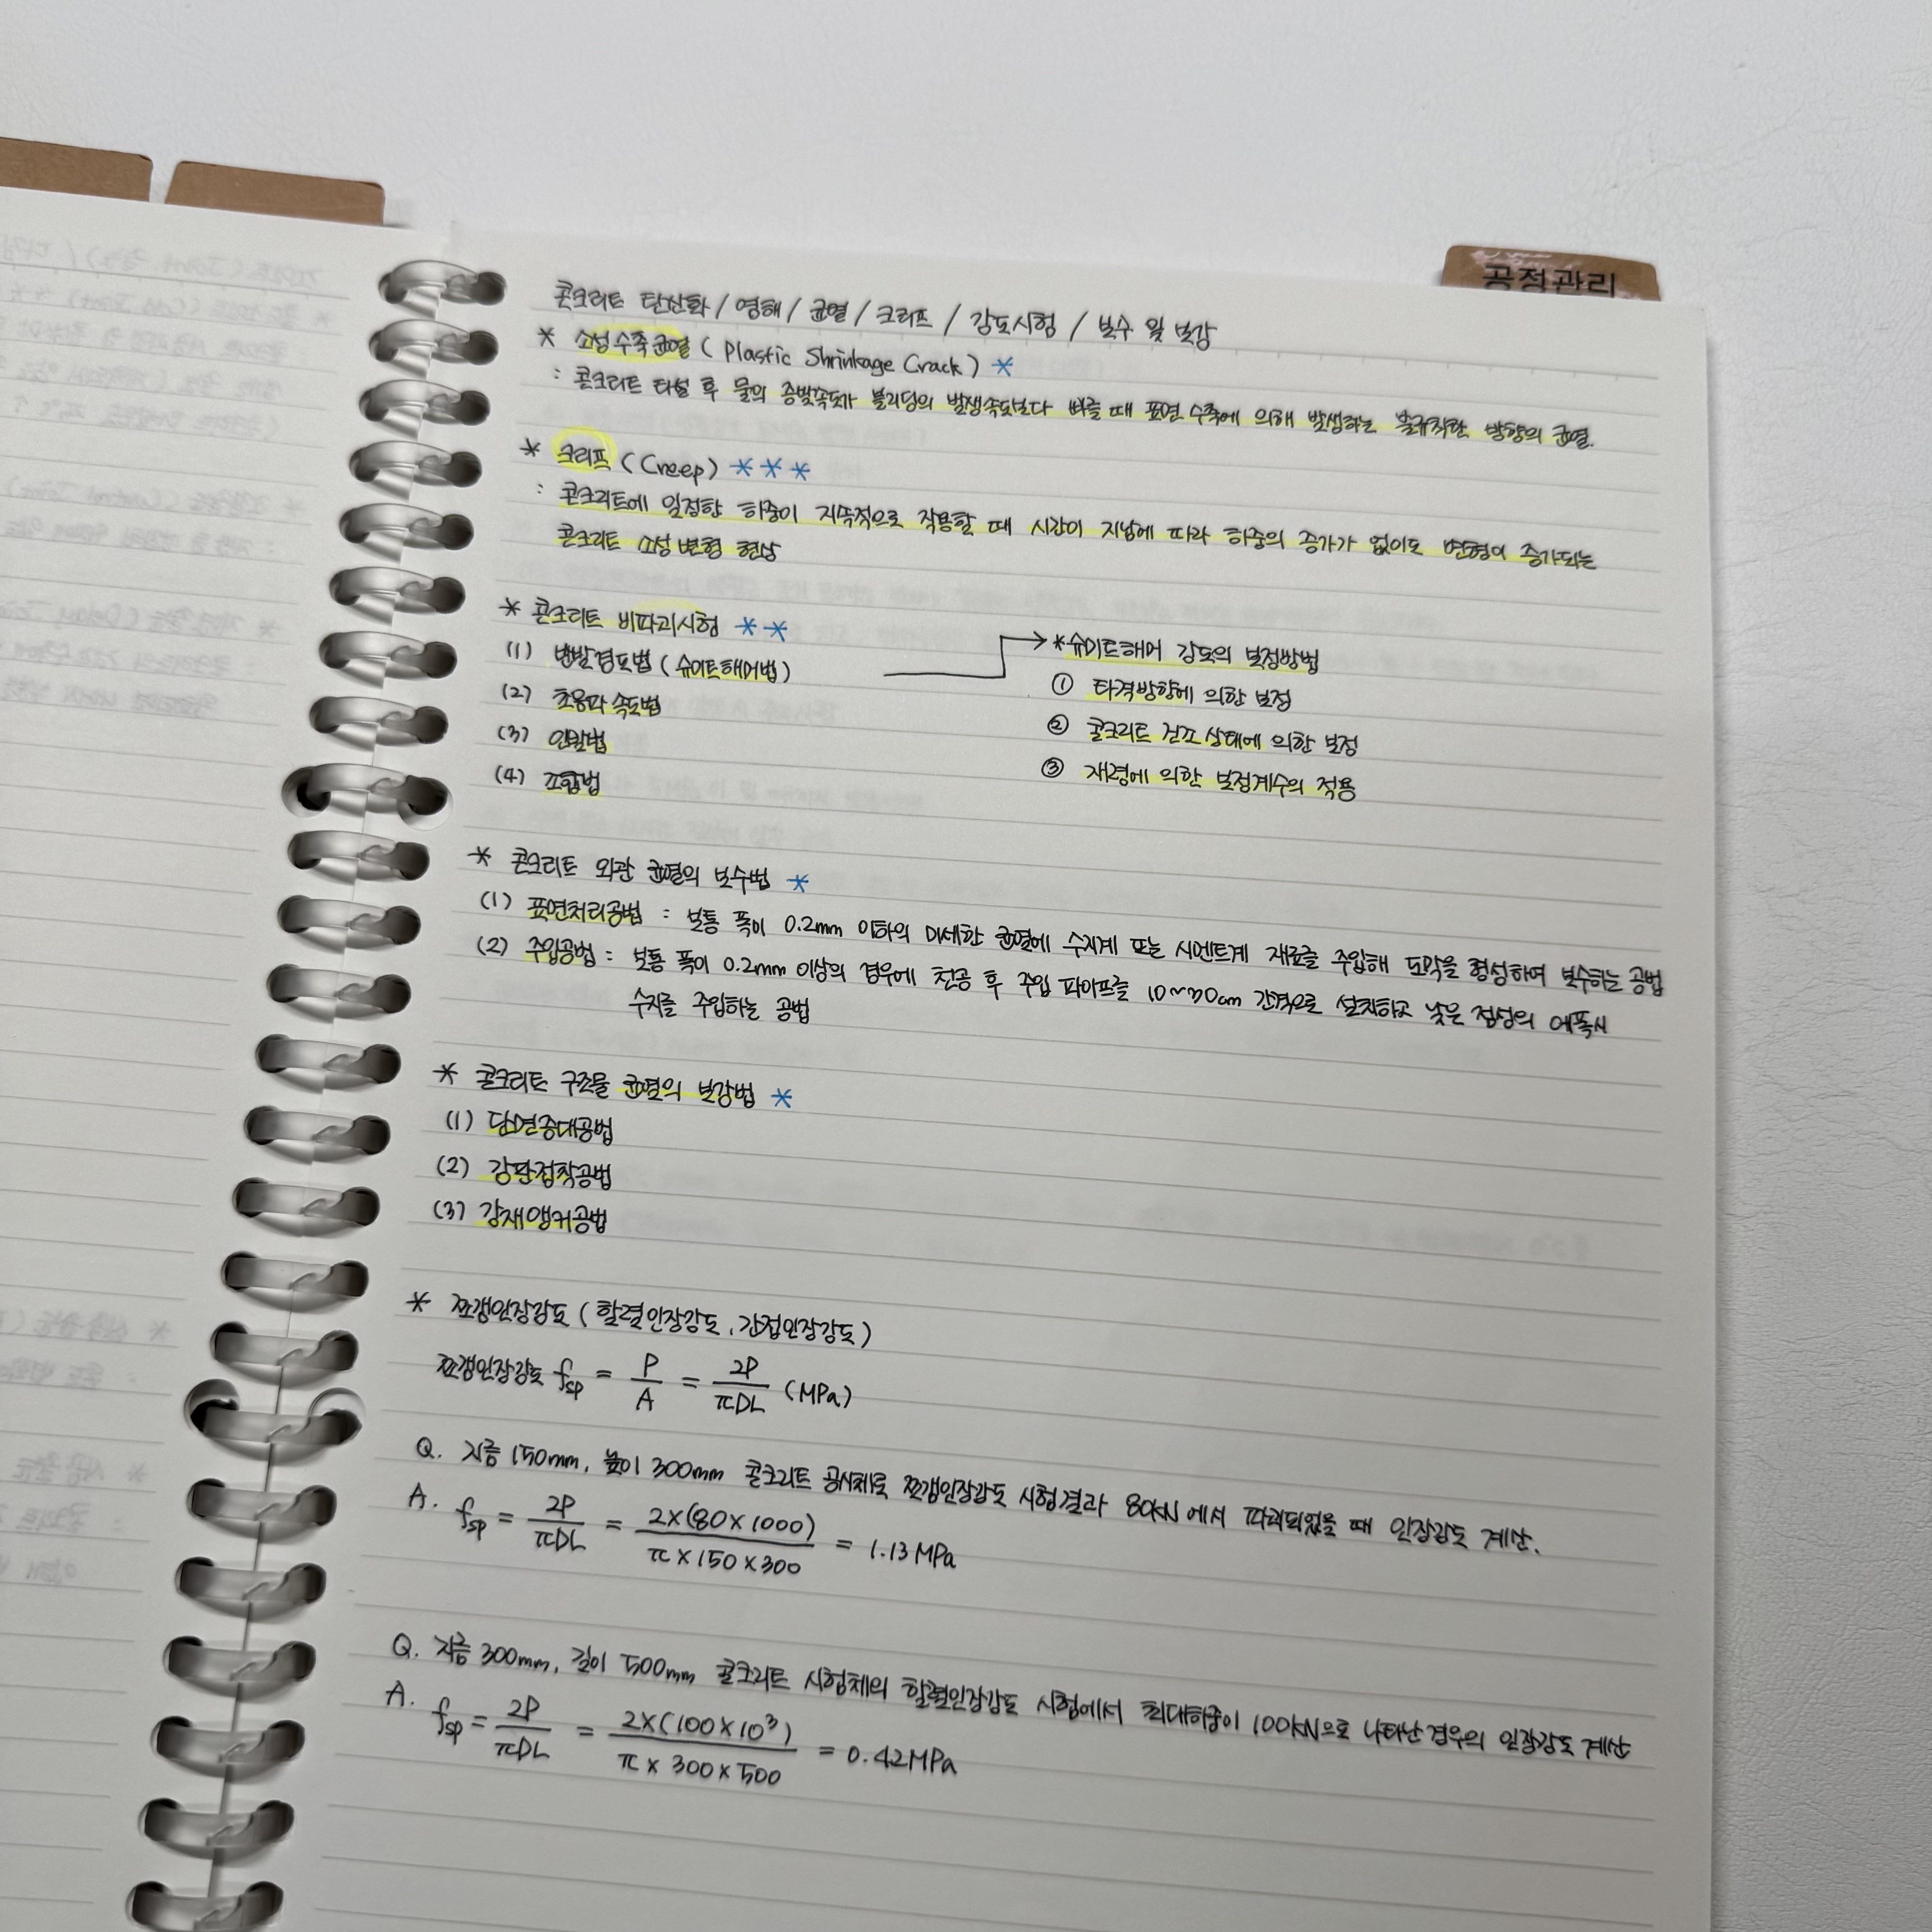 공정관리
콘크리트 탄산화 / 염해 / 균열 / 크리프 / 강도시험 / 보수 및 보강
* 소성수축균열 ( Plastic Shrinkage Crack ) *
: 콘크리트 타설 후 물의 증발속도가 블리딩의 발생속도보다 빠를 때 표면 수축에 의해 발생하는 불규칙한 방향의 균열.
* 크리프 ( Creep ) * * *
: 콘크리트에 일정한 하중이 지속적으로 작용할 때 시간이 지남에 따라 하중의 증가가 없이도 변형이 증가되는
콘크리트 소성 변형 현상
* 콘크리트 비파괴시험 * *
(1) 반발경도법 ( 슈미트해머법 )
(2) 초음파 속도법
(3) 인발법
(4) 조합법
* 슈미트해머 강도의 보정방법
① 타격방향에 의한 보정
② 콘크리트 건조 상태에 의한 보정
③ 재령에 의한 보정계수의 적용
* 콘크리트 외관 균열의 보수법 *
(1) 표면처리공법 : 보통 폭이 0.2mm 이하의 미세한 균열에 수지계 또는 시멘트계 재료를 주입해 도막을 형성하여 보수하는 공법
(2) 주입공법 : 보통 폭이 0.2mm 이상의 경우에 천공 후 주입 파이프를 10~30cm 간격으로 설치하고 낮은 점성의 에폭시
수지를 주입하는 공법
* 콘크리트 구조물 균열의 보강법 *
(1) 단면증대공법
(2) 강판접착공법
(3) 강재앵커공법
* 쪼갬인장강도 ( 할렬인장강도, 간접인장강도 )
쪼갬인장강도 fsp = P/A = 2P/πDL (MPa)
Q. 지름 150mm, 높이 300mm 콘크리트 공시체로 쪼갬인장강도 시험결과 80kN 에서 파괴되었을 때 인장강도 계산.
A. fsp = 2P/πDL = 2×(80×1000)/π×150×300 = 1.13MPa
Q. 지름 300mm, 길이 500mm 콘크리트 시험체의 할렬인장강도 시험에서 최대하중이 100kN으로 나타난 경우의 인장강도 계산
A. fsp = 2P/πDL = 2×(100×10³)/π×300×500 = 0.42MPa